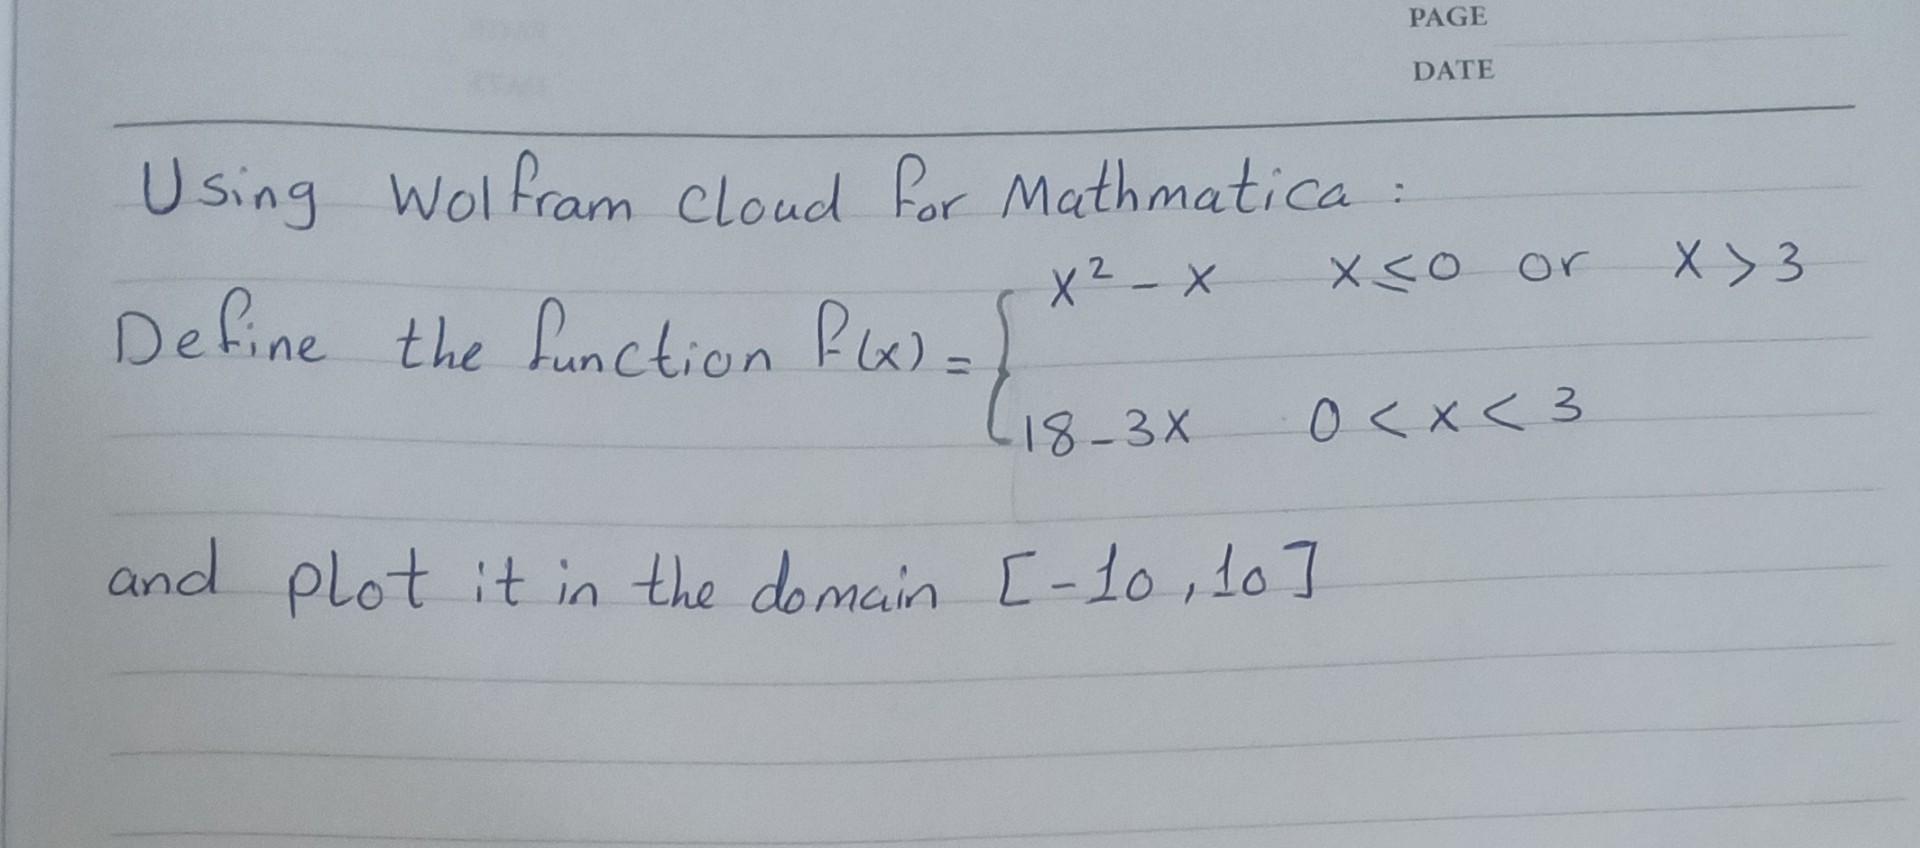 PAGE
DATE
Using Wolfram Cloud for Mathmatica :
x² - x    x ≤ 0 or x > 3
Define the function f(x) = {
18 - 3x    0 < x < 3
and plot it in the domain [-10, 10]